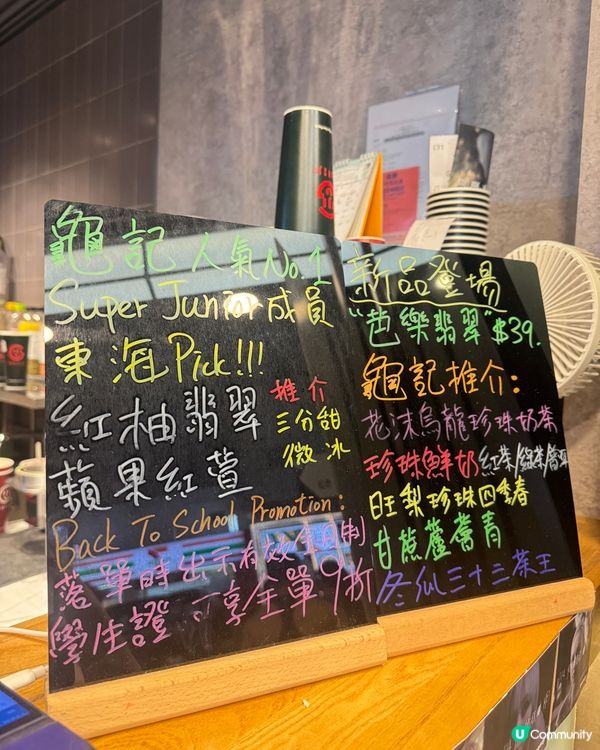 龜記人氣No.1
Super Junior成員
東海Pick!!!
紅柚翡翠
蘋果紅萱
推介
三分甜
微冰
Back To School Promotion:
落單時出示有效全日制
學生證 可享全單9折
新品登場
"芭樂翡翠"$39.
龜記推介:
花沫烏龍珍珠奶茶
珍珠鮮奶 紅茶/綠茶/
旺梨珍珠四季春
甘蔗蘆薈青
冬仙三十三茶王
U Community